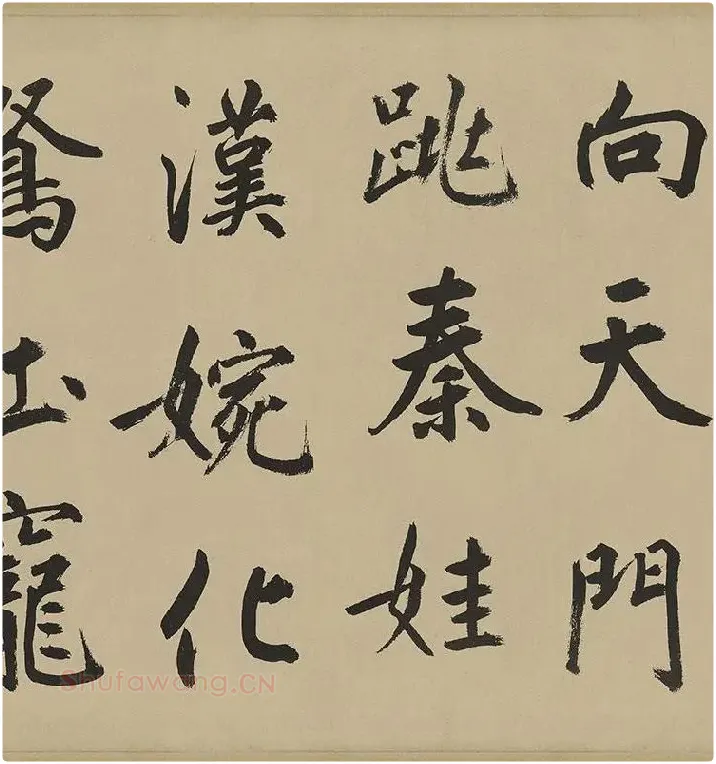 向天門
跳秦娃
漢婉化
玉
Shufawang.CN